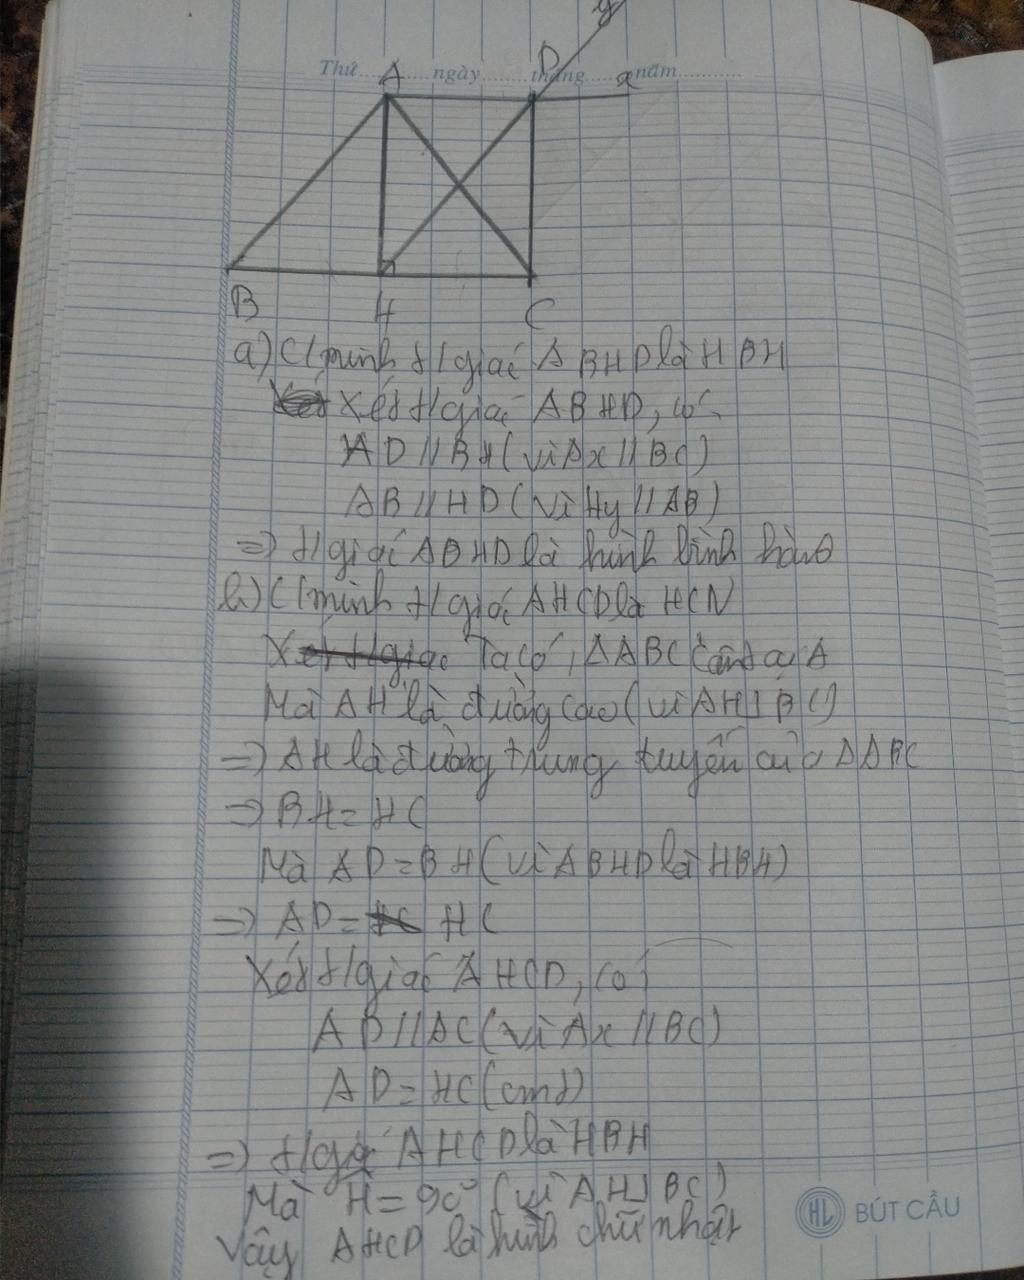 y
Thứ.......ngày.......tháng.......năm...........
A D x
B H C
a) C/minh t/giác ABHD là HBH
Xét t/giác ABHD, có:
AD // BH (vì Ax // BC)
AB // HD (vì Hy // AB)
=) t/giác ABHD là hình bình hành
b) C/minh t/giác AHCD là HCN
Ta có, ΔABC cân tại A
Mà AH là đường cao (vì AH⊥BC)
=) AH là đường trung tuyến của ΔABC
=) BH = HC
Mà AD = BH (vì ABHD là HBH)
=) AD = HC
Xét t/giác AHCD, có
AD // AC (vì Ax // BC)
AD = HC (cmt)
=) t/giác AHCD là HBH
Mà Ĥ = 90° (vì AH⊥BC)
Vậy AHCD là hình chữ nhật
HL BÚT CẦU